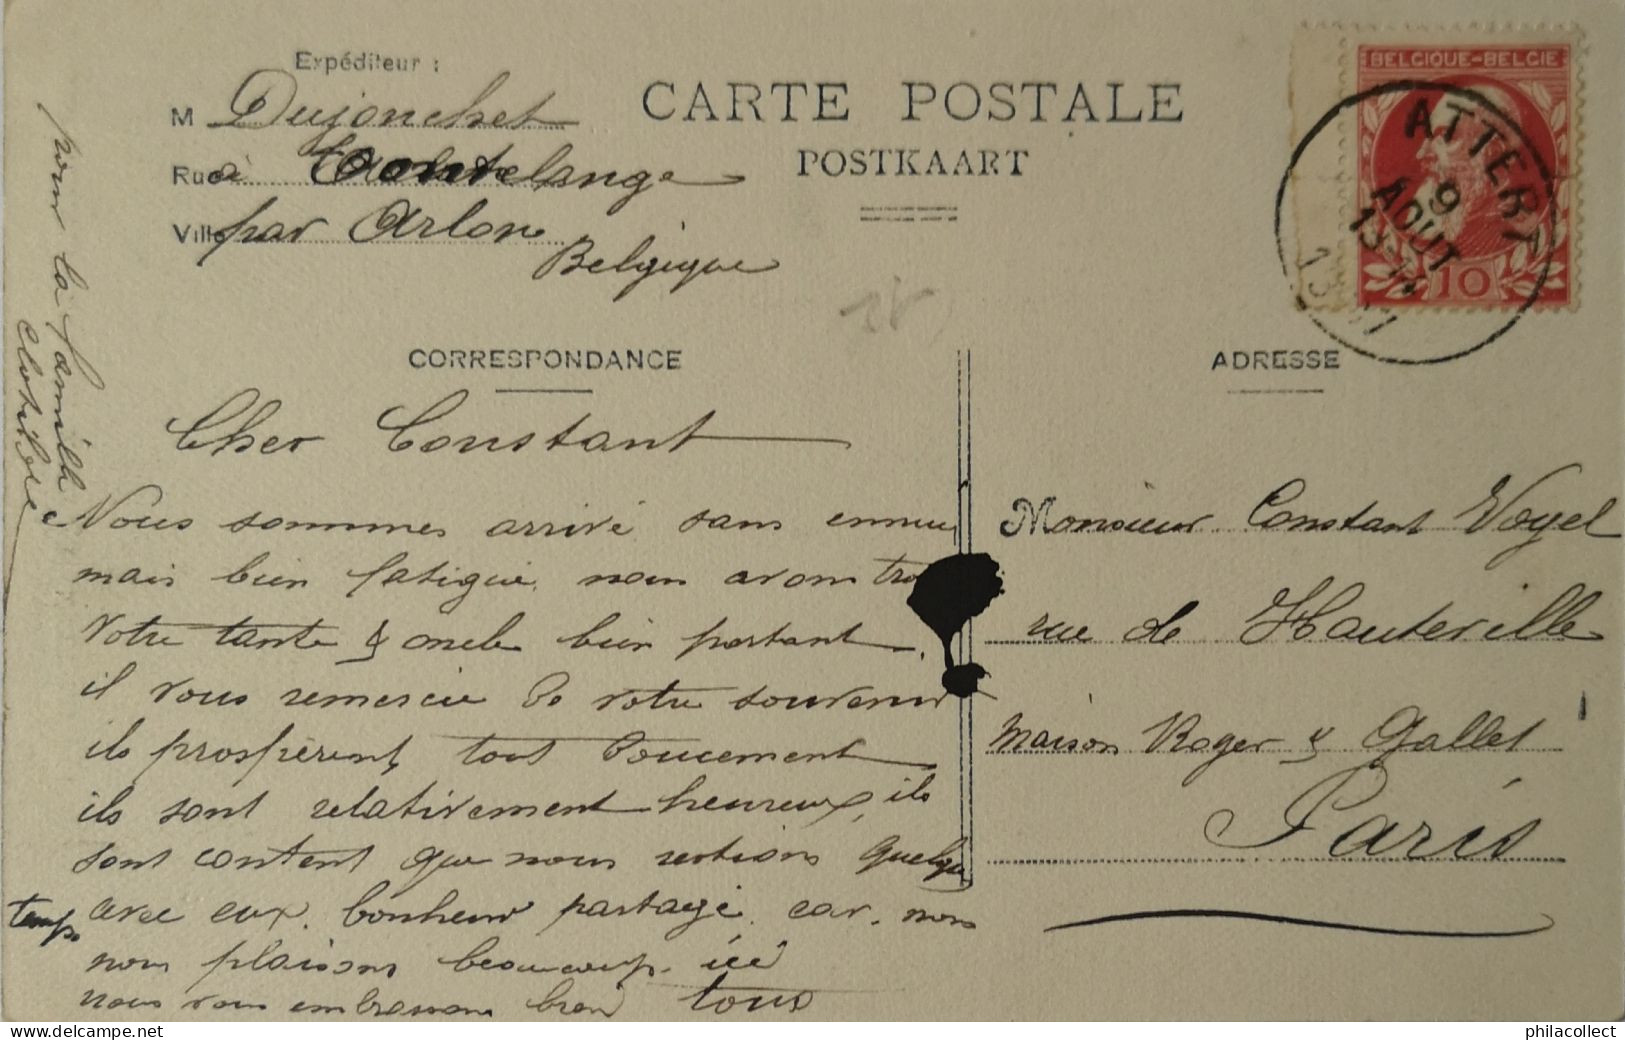 Expéditeur :
M Dujonchet
Rue à Tontelange
Ville par Arlon
Belgique
CARTE POSTALE
POSTKAART
BELGIQUE-BELGIE
10
ATTERT
9
AOUT
13-14
CORRESPONDANCE
ADRESSE
Cher Constant
Nous sommes arrivé sans ennui
mais bien fatigué, nous avons trouvé
votre tante & oncle bien portant,
il vous remercie de votre souvenir
ils prospèrent tout doucement
ils sont relativement heureux, ils
sont content que nous restions quelque
temps avec eux, bonheur partagé, car, nous
nous plaisons beaucoup ici
nous vous embrassons bien tous
pour la famille
Clotilde
Monsieur Constant Vogel
rue de Hauteville
maison Roger & Gallet
Paris
philacollect